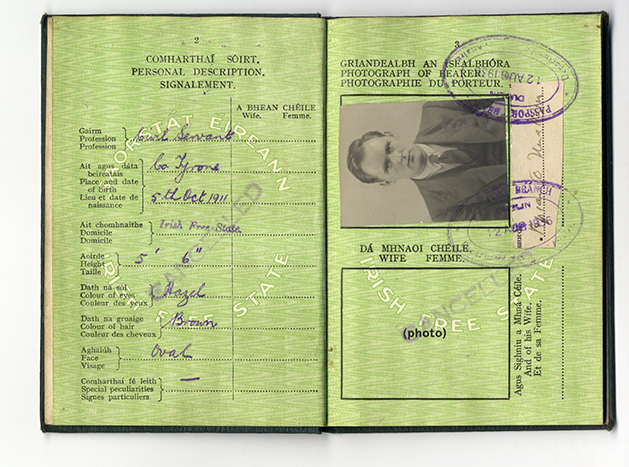 2
COMHARTHAÍ SÓIRT.
PERSONAL DESCRIPTION.
SIGNALEMENT.
A BHEAN CHÉILE
Wife. Femme.
Gairm
Profession
Profession
Civil Servant
Ait agus dáta
beireatais
Place and date
of birth
Lieu et date de
naissance
Co Tyrone
5th Oct 1911
Ait chomhnaithe
Domicile
Domicile
Irish Free State
Aoirde
Height
Taille
5' 6"
Dath na súl
Colour of eyes
Couleur des yeux
Hazel
Dath na gruaige
Colour of hair
Couleur des cheveux
Brown
Aghaidh
Face
Visage
Oval
Comharthaí fé leith
Special peculiarities
Signes particuliers
—
SAORSTAT EIREANN
IRISH FREE STATE
CANCELLED
3
GRIANDEALBH AN tSEALBHÓRA
PHOTOGRAPH OF BEARER.
PHOTOGRAPHIE DU PORTEUR.
12 AUG 193
PASSPOR
DÁ MHNAOI CHÉILE.
WIFE FEMME.
(photo)
IRISH FREE STATE
CANCELLED
Agus Sighniu a Mhná Céile.
And of his Wife.
Et de sa Femme.